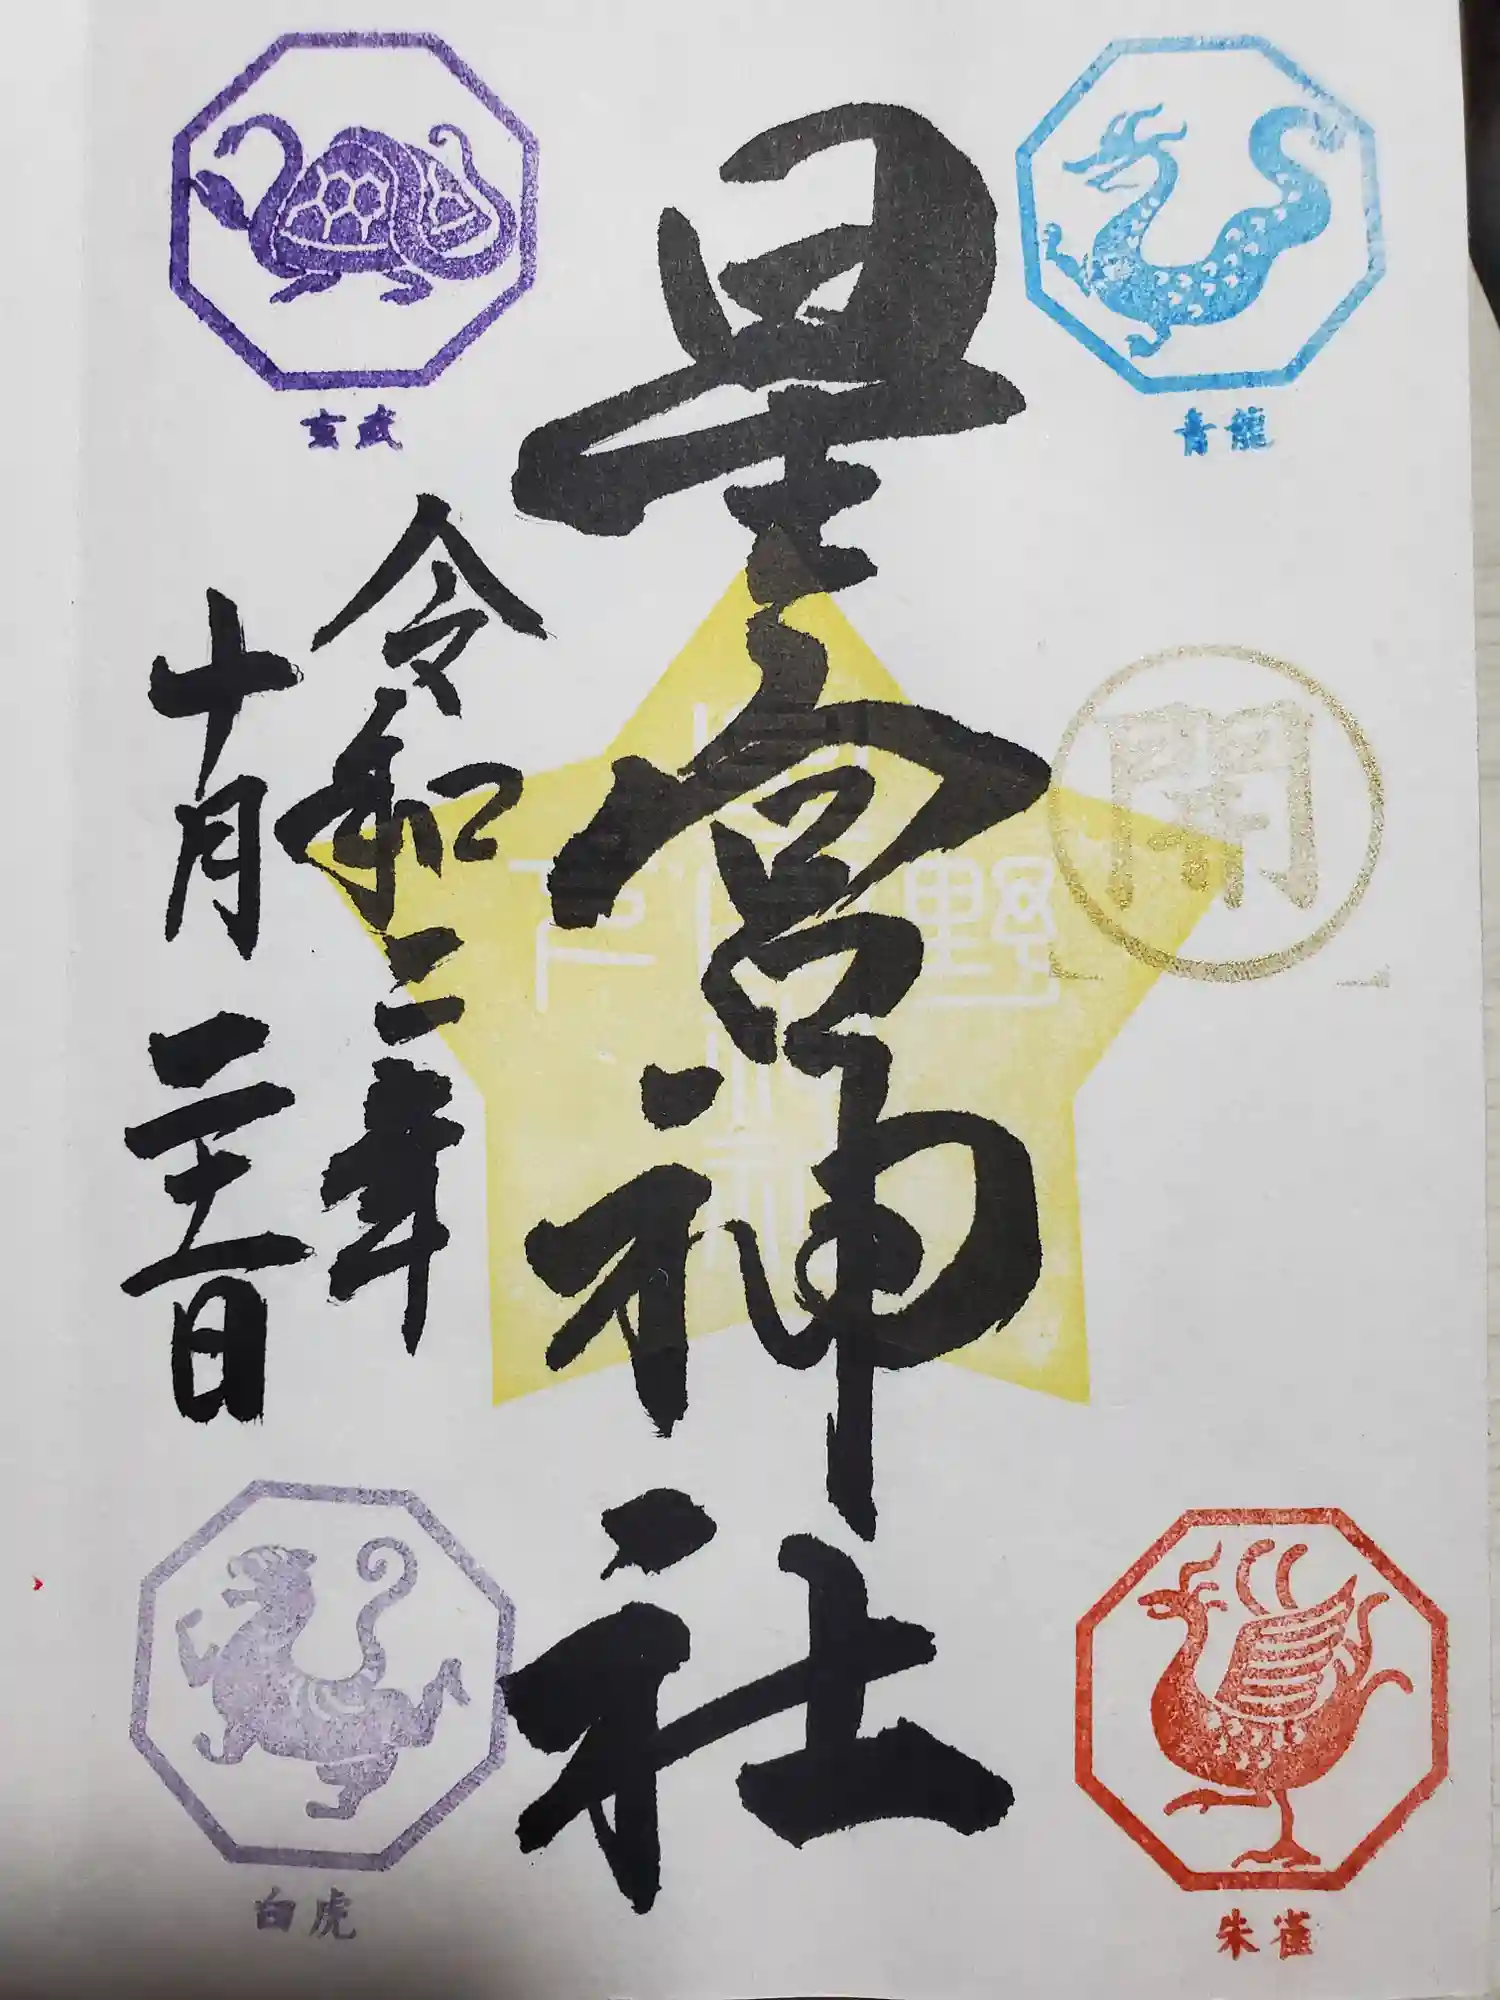 青龍
開
朱雀
星宮神社
玄武
令和二年
十月二十一日
白虎